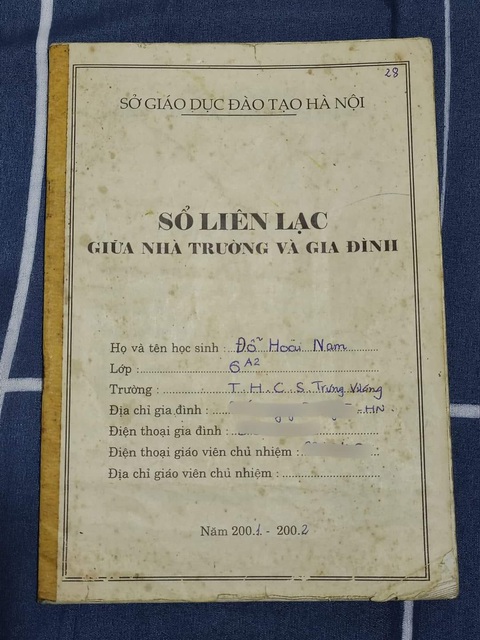 28
SỞ GIÁO DỤC ĐÀO TẠO HÀ NỘI
SỔ LIÊN LẠC
GIỮA NHÀ TRƯỜNG VÀ GIA ĐÌNH
Họ và tên học sinh : Đỗ Hoài Nam
Lớp : 6A2
Trường : T.H.C.S Trưng Vương
Địa chỉ gia đình : HN
Điện thoại gia đình :
Điện thoại giáo viên chủ nhiệm :
Địa chỉ giáo viên chủ nhiệm :
Năm 2001 - 2002